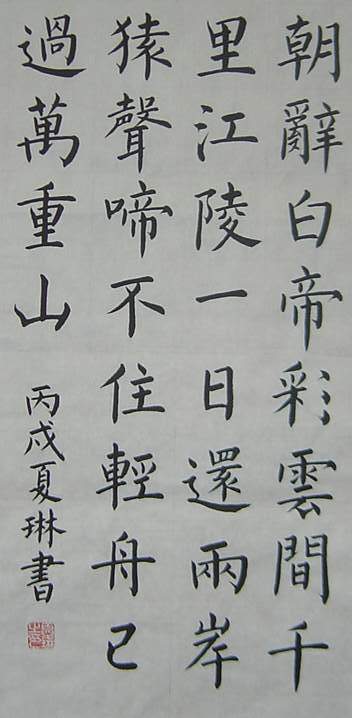 朝辭白帝彩雲間千
里江陵一日還兩岸
猿聲啼不住輕舟已
過萬重山
丙戌夏琳書